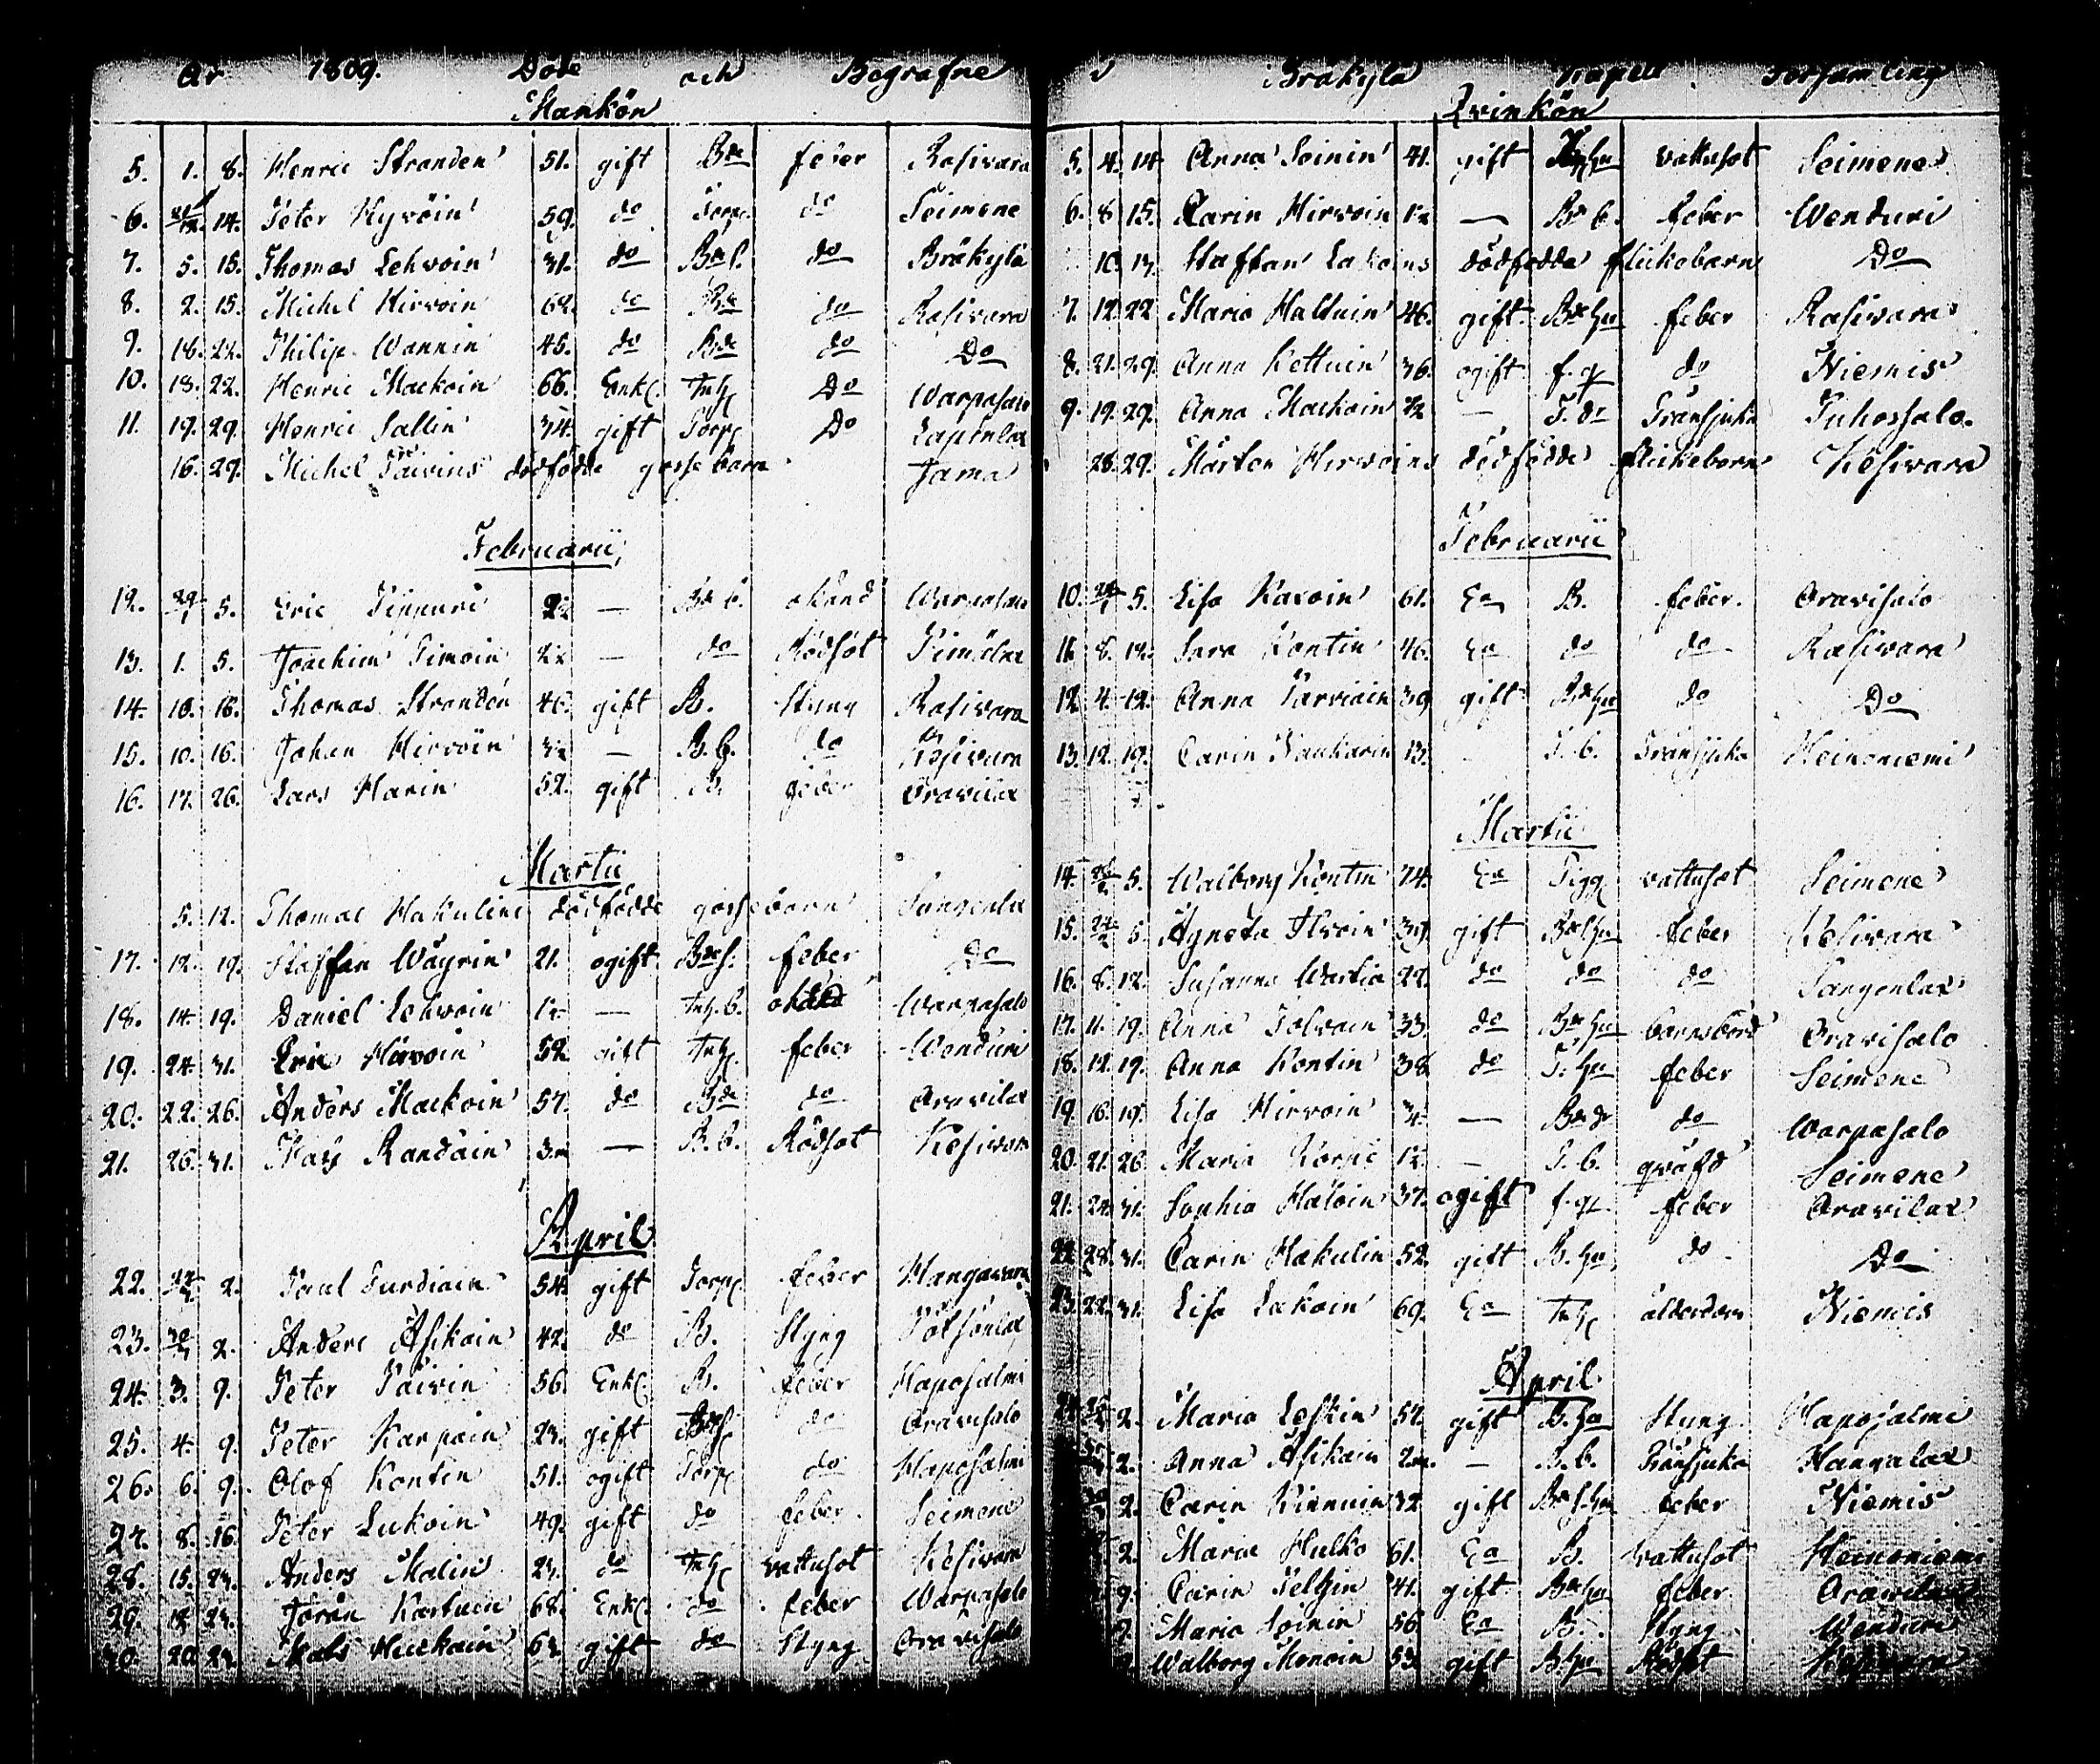 År 1809. Döde och Begrafne
Mankön
5. 1. 8. Henric Stranden 51. gift Bde feber Rasivara
6. 14. Peter Hyvöin 59. do Torp. do Seimene
7. 5. 15. Thomas Lehvoin 31. do do Bråkylä
8. 2. 15. Michel Hirvoin 62. do Bde do Rasivara
9. 16. 22. Philip Wannin 45. do Bde do Do
10. 13. 22. Henric Mackoin 66. Enkl. Inh. Do Warpasalo
11. 19. 29. Henric Sallin 34. gift Torp. Do
16. 29. Michel Päivins dödfödde gossebarn Jama
Februarii
12. 29/1 5. Eric — okänd Warpasalo
13. 1. 5. Joachim Timoin — do Rödsot
14. 10. 16. Thomas Stranden 46. gift B. Styng Rasivara
15. 10. 16. Johan Hirvoin — B.b. do Kesivara
16. 17. 26. Lars Harin 52. gift B. feber Oravilax
Martii
5. 12. Thomas Hakulins dödfödde gossebarn Sangenlax
17. 12. 19. Staffan Wäyrin 21. ogift feber Do
18. 14. 19. Daniel Lehvoin — Inh.b. Warpasalo
19. 24. 31. Eric Hirvoin 52. gift Inh. feber Wenduri
20. 22. 26. Anders Mackoin 57. do Bde do Oravilax
21. 26. 31. Mats Randain 3m — B.b. Rödsot Kesivara
April
22. 2. Paul Turdiain 54. gift Torp. feber Hangavara
23. 30/3 2. Anders Asikain 42. do B. Styng Pötsönlax
24. 3. 9. Peter Päivin 56. Enkl. B. feber Haposalmi
25. 4. 9. Peter Karpain 23. gift do Oravisalo
26. 6. 9. Olof Kontin 51. ogift Torp. do Haposalmi
27. 8. 16. Peter Lukoin 49. gift do feber Seimene
28. 15. 23. Anders Malin 23. do Inh. vattusot Kesivara
29. 18. 23. Jöran Kartuin 68. Enkl. do feber Warpasalo
30. 20. 23. Mats Huckain 63. gift do Styng Oravisalo
i Bråkylä Kapell Församling
Qvinkön
5. 4. 14. Anna Soinin 41. gift vattusot Seimene
6. 8. 15. Carin Hirvoin — B.b. feber Wenduri
10. 13. Staffan Lakoins dödfödda flickobarn Do
7. 12. 22. Maria Haltuin 46. gift feber Rasivara
8. 21. 29. Anna Kettuin 36. ogift f.q. do Niemis
9. 19. 29. Anna Mackoin — T.dr Transjuka Puhossalo.
28. 29. Mårten Hirvoins dödfödde flickebarn Kesivara
Februarii
10. 5. Lisa Kavoin 61. Ea B. feber. Oravisalo
11. 8. 12. Sara Kontin 46. Ea do do Rasivara
12. 4. 12. Anna Parviain 39. gift do Do
13. 12. 19. Carin Kaukarin 13. T.b. Transjuka Heinoniemi
Martii
14. 5. Walborg Kontin 74. Ea Tigg. vattusot Seimene
15. 5. Agneta Ilvoin 39. gift feber Kesivara
16. 8. 12. Susanna Wartia 22. do do do Sangenlax
17. 11. 19. Anna Tolvain 33. do barnsbörd Oravisalo
18. 12. 19. Anna Kontin 38. do T.hu feber Seimene
19. 16. 19. Lisa Hirvoin — do Warpasalo
20. 21. 26. Maria Korpi — T.b. qväfd Seimene
21. 24. 31. Sophia Haloin 37. ogift f.q. feber Oravilax
22. 28. 31. Carin Hakulin 52. gift B.hu do Do
23. 22. 31. Lisa Lakoin 69. Ea Inh. ålderdom Niemis
April
2. Maria Leskin 57. gift B.hu Styng Haposalmi
2. Anna Asikain 2m. — B.b. Transjuka Hangalax
2. Carin Kinnuin 32. gift feber Niemis
2. Maria Hulko 61. Ea B. vattusot Heinoniemi
9. Carin Peltzin 41. gift feber Oravilax
9. Maria Soinin 56. Ea B. Styng Wenduri
Walborg Monoin 53. gift B.hu Rödsot Kesivara